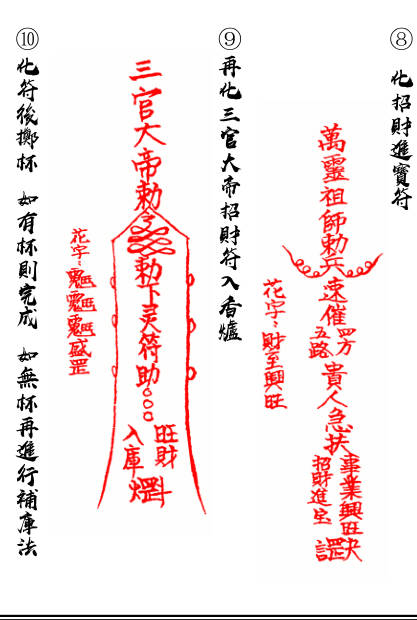 ⑧
化招財進寶符
萬靈祖師勅
兵
速催
四方
五路
貴人急扶
事業興旺
招財進宝
花字：財至興旺
⑨
再化三官大帝招財符入香爐
三官大帝勅令
勅下灵符助○○○
旺財
入庫
罡
花字：
⑩
化符後擲杯 如有杯則完成 如無杯再進行補庫法